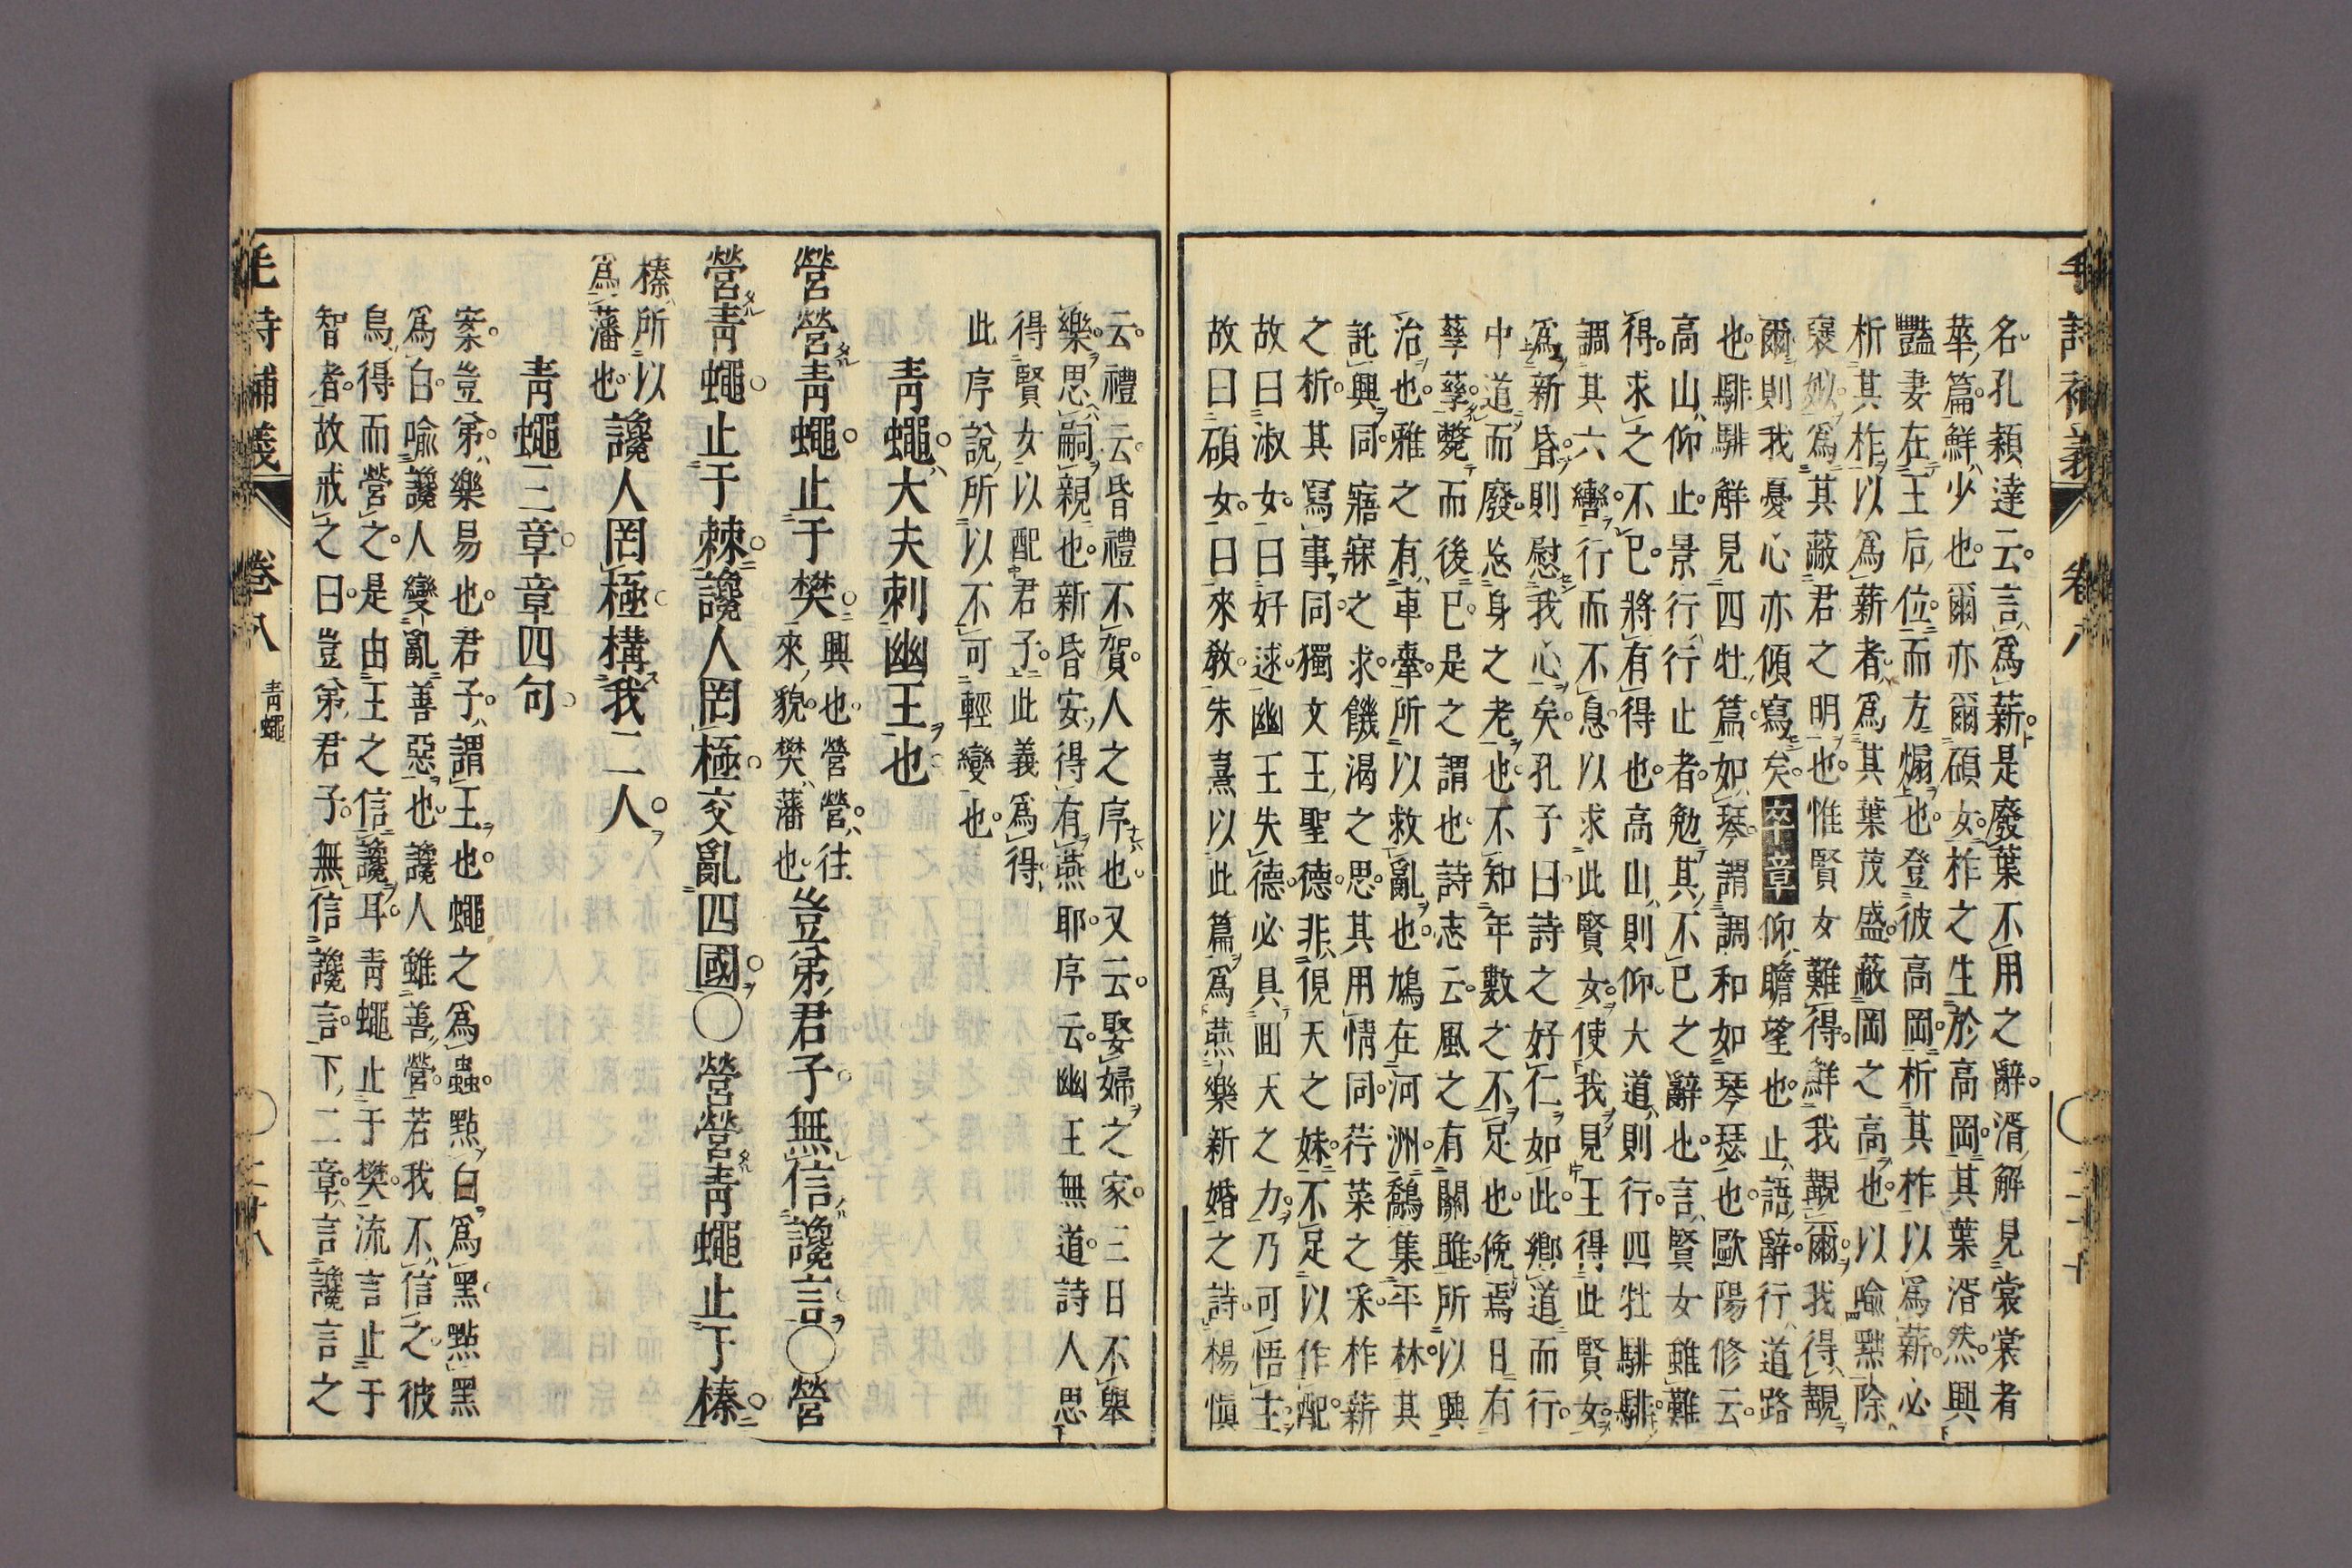 毛詩補義 卷八
名孔穎達云言爲薪是廢葉不用之辭湑解見裳裳者
華篇鮮少也爾亦爾碩女柞之生於高岡其葉湑然興
豔妻在王后位而方煽也登彼高岡析其柞以爲薪必
析其柞以爲薪者爲其葉茂盛蔽岡之高也以喻黜除
襃姒爲其蔽君之明也惟賢女難得鮮我覯爾我得覯
爾則我憂心亦傾寫矣卒章仰瞻望也止語辭行道路
也騑騑解見四牡篇如琴謂調和如琴瑟也歐陽修云
高山仰止景行行止者勉其不已之辭也言賢女雖難
得求之不已將有得也高山則仰大道則行四牡騑騑
調其六轡行而不息以求此賢女使我見王得此賢女
爲新昏則慰我心矣孔子曰詩之好仁如此鄉道而行
中道而廢忘身之老也不知年數之不足也俛焉日有
孳孳斃而後已是之謂也詩志云風之有關雎所以興
治也雅之有車舝所以救亂也鳩在河洲鷮集平林其
託興同寤寐之求饑渴之思其用情同荇菜之采柞薪
之析其寫事同獨文王聖德非俔天之妹不足以作配
故曰淑女曰好逑幽王失德必具回天之力乃可悟主
故曰碩女曰來教朱熹以此篇爲燕樂新婚之詩楊愼
云禮云昏禮不賀人之序也又云娶婦之家三日不舉
樂思嗣親也新昏安得有燕耶序云幽王無道詩人思
得賢女以配君子此義爲得
此序說所以不可輕變也
青蠅大夫刺幽王也
營營青蠅止于樊興也營營往
來貌樊藩也豈弟君子無信讒言〇營
營青蠅止于棘讒人罔極交亂四國〇營營青蠅止于榛
榛所以
爲藩也讒人罔極構我二人
青蠅三章章四句
案豈弟樂易也君子謂王也蠅之爲蟲點白爲黑點黑
爲白喻讒人變亂善惡也讒人雖善營若我不信之彼
烏得而營之是由王之信讒耳青蠅止于樊流言止于
智者故戒之曰豈弟君子無信讒言下二章言讒言之
毛詩補義 卷八 青蠅